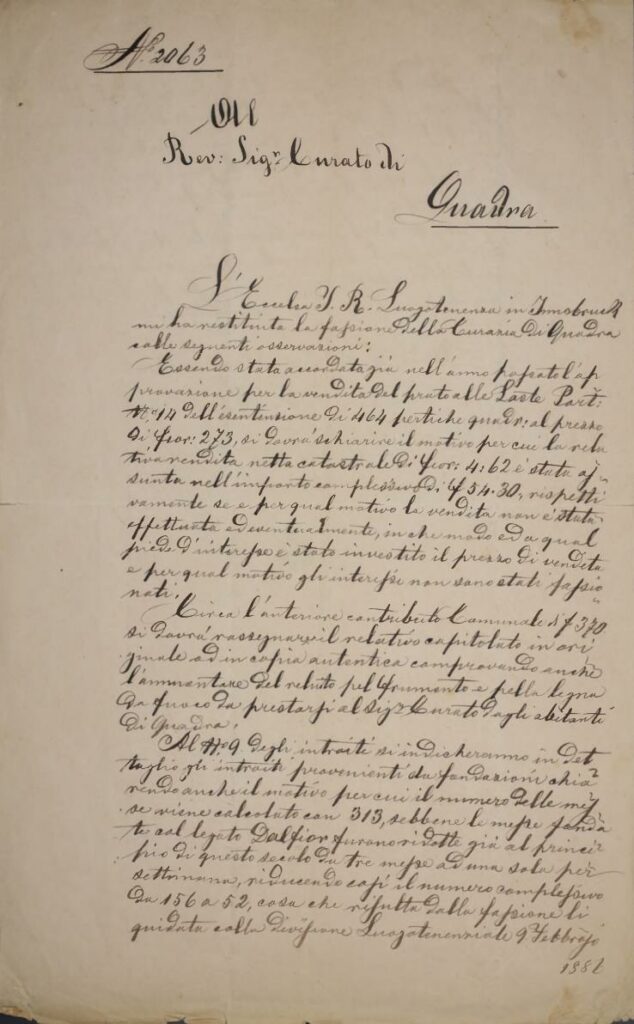 N.° 2063
Al
Rev: Sigr. Curato di
Quadra
L'Eccelsa I. R. Luogotenenza in Innsbruck
mi ha restituita la fassione della Curazia di Quadra
colle seguenti osservazioni:
Essendo stata accordata già nell'anno passato l'ap
provazione per la vendita del prato alle Laste Part:
N:° 14 dell'esentensione di 464 pertiche quadr: al prezzo
di fior: 273, si dovrà schiarire il motivo per cui la rela
tiva rendita netta catastrale di fior: 4:62 è stata as
sunta nell'importo complessivo di f 54.30, rispetti
vamente se e per qual motivo la vendita non è stata
effettuata ad eventualmente, in che modo ed a qual
piede d'interesse è stato investito il prezzo di vendita
e per qual motivo gli interessi non sono stati fassio
nati.
Circa l'anteriore contributo Comunale di f 370
si dovrà rassegnare il relativo capitolato in ori
ginale od in copia autentica comprovando anche
l'ammontare del reluto pel frumento e pella legna
da fuoco da prestarsi al Sigr. Curato dagli abitanti
di Quadra.
Al N:° 9 degli introiti si indicheranno in det
taglio gli introiti provenienti da fondazioni chia
rendo anche il motivo per cui il numero delle mes
se viene calcolato con 313, sebbene le messe fonda
te col legato Dalfior furono ridotte già al princi
pio di questo secolo da tre messe ad una sola per
settimana, riducendo così il numero complessivo
da 156 a 52, cosa che risulta dalla fassione li
quidata colla divisione Luogotenenziale 9 Febbrajo